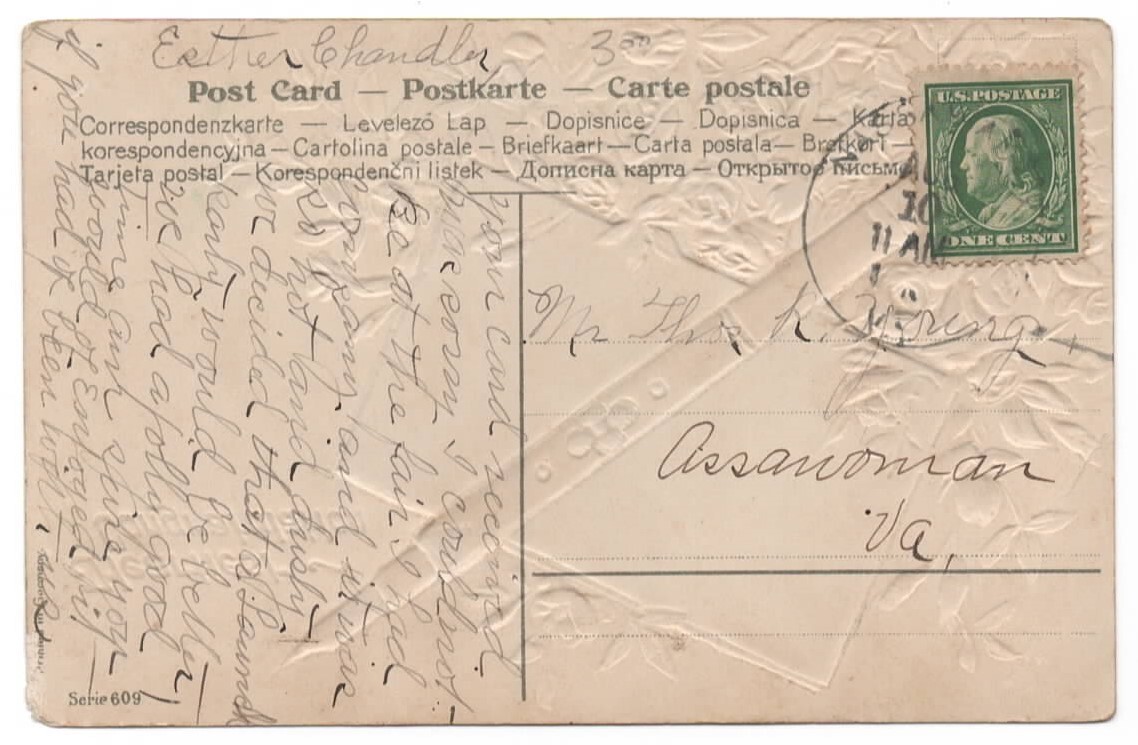 Esther Chandler 3⁰⁰
Post Card — Postkarte — Carte postale
Correspondenzkarte — Levelező Lap — Dopisnice — Dopisnica — Karta
korespondencyjna — Cartolina postale — Briefkaart — Carta postala — Brefkort —
Tarjeta postal — Korespondenčni listek — Дописна карта — Открытое письмо
U.S. POSTAGE
ONE CENT
10
11 AM
Mr Thos R. Young
Assawoman
Va,
your card received
was sorry I couldnot
Be at the fair I had
company and it was
so hot and dusty
we decided that a Launch
party would be better
we had a jolly good
time am sure you
would of Enjoyed it
if you had of been with
Printed in Germany
Serie 609